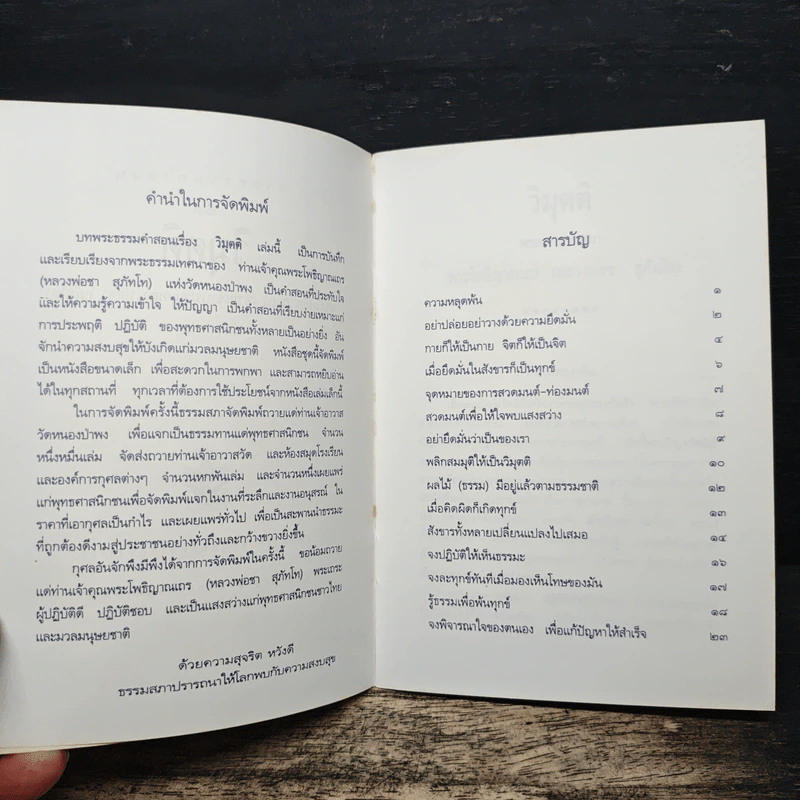 คำนำในการจัดพิมพ์
บทพระธรรมคำสอนเรื่อง วิมุตติ เล่มนี้ เป็นการบันทึก
และเรียบเรียงจากพระธรรมเทศนาของ ท่านเจ้าคุณพระโพธิญาณเถร
(หลวงพ่อชา สุภัทโท) แห่งวัดหนองป่าพง เป็นคำสอนที่ประทับใจ
และให้ความรู้ความเข้าใจ ให้ปัญญา เป็นคำสอนที่เรียบง่ายเหมาะแก่
การประพฤติ ปฏิบัติ ของพุทธศาสนิกชนทั้งหลายเป็นอย่างยิ่ง อัน
จักนำความสงบสุขให้บังเกิดแก่มวลมนุษยชาติ หนังสือชุดนี้จัดพิมพ์
เป็นหนังสือขนาดเล็ก เพื่อสะดวกในการพกพา และสามารถหยิบอ่าน
ได้ในทุกสถานที่ ทุกเวลาที่ต้องการใช้ประโยชน์จากหนังสือเล่มเล็กนี้
ในการจัดพิมพ์ครั้งนี้ธรรมสภาจัดพิมพ์ถวายแด่ท่านเจ้าอาวาส
วัดหนองป่าพง เพื่อแจกเป็นธรรมทานแด่พุทธศาสนิกชน จำนวน
หนึ่งหมื่นเล่ม จัดส่งถวายท่านเจ้าอาวาสวัด และห้องสมุดโรงเรียน
และองค์การกุศลต่างๆ จำนวนหกพันเล่ม และจำนวนหนึ่งเผยแพร่
แก่พุทธศาสนิกชนเพื่อจัดพิมพ์แจกในงานที่ระลึกและงานอนุสรณ์ ใน
ราคาที่เอากุศลเป็นกำไร และเผยแพร่ทั่วไป เพื่อเป็นสะพานนำธรรมะ
ที่ถูกต้องดีงามสู่ประชาชนอย่างทั่วถึงและกว้างขวางยิ่งขึ้น
กุศลอันจักพึงมีพึงได้จากการจัดพิมพ์ในครั้งนี้ ขอน้อมถวาย
แด่ท่านเจ้าคุณพระโพธิญาณเถร (หลวงพ่อชา สุภัทโท) พระเถระ
ผู้ปฏิบัติดี ปฏิบัติชอบ และเป็นแสงสว่างแก่พุทธศาสนิกชนชาวไทย
และมวลมนุษยชาติ
ด้วยความสุจริต หวังดี
ธรรมสภาปรารถนาให้โลกพบกับความสงบสุข
สารบัญ
ความหลุดพ้น ๑
อย่าปล่อยอย่าวางด้วยความยึดมั่น ๒
กายก็ให้เป็นกาย จิตก็ให้เป็นจิต ๔
เมื่อยึดมั่นในสังขารก็เป็นทุกข์ ๖
จุดหมายของการสวดมนต์-ท่องมนต์ ๗
สวดมนต์เพื่อให้ใจพบแสงสว่าง ๘
อย่ายึดมั่นว่าเป็นของเรา ๙
พลิกสมมุติให้เป็นวิมุตติ ๑๐
ผลไม้ (ธรรม) มีอยู่แล้วตามธรรมชาติ ๑๒
เมื่อคิดผิดก็เกิดทุกข์ ๑๓
สังขารทั้งหลายเปลี่ยนแปลงไปเสมอ ๑๔
จงปฏิบัติให้เห็นธรรมะ ๑๖
จงละทุกข์ทันทีเมื่อมองเห็นโทษของมัน ๑๗
รู้ธรรมเพื่อพ้นทุกข์ ๑๘
จงพิจารณาใจของตนเอง เพื่อแก้ปัญหาให้สำเร็จ ๒๓